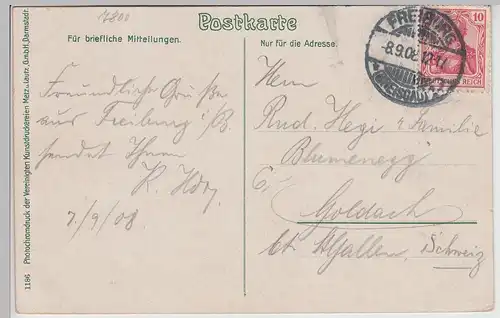 7800
Postkarte
Für briefliche Mitteilungen.
Nur für die Adresse.
Freundliche Grüße
aus Freiburg i/B.
sendet Ihnen
7/9/08
Herrn
Rud. Hegi & Familie
Blumenegg
Goldach
Ct. St. Gallen, Schweiz
FREIBURG
8.9.08
(BREISGAU)
10
REICH
1186 Photochromdruck der Vereinigten Kunstdruckereien Metz u. Lautz, G.m.b.H. Darmstadt.